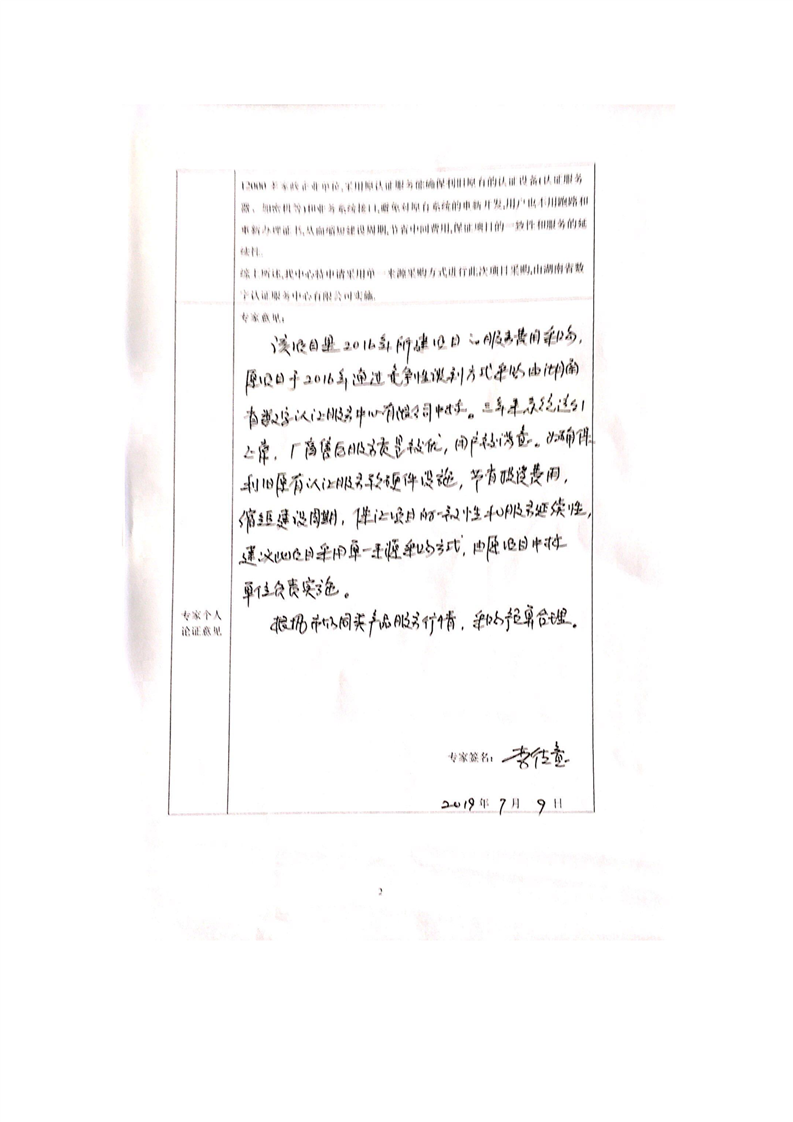 12000多家政企业单位,采用原认证服务能确保利旧原有的认证设备(认证服务
器、加密机等)和业务系统接口,避免对原有系统的重新开发,用户也不用跑路和
重新办理证书,从而缩短建设周期,节省中间费用,保证项目的一致性和服务的延
续性.
综上所述,我中心特申请采用单一来源采购方式进行此次项目采购,由湖南省数
字认证服务中心有限公司实施.
专家意见:
该项目是2016年所建项目的服务费用采购,
原项目于2016年通过竞争性谈判方式采购由湖南
省数字认证服务中心有限公司中标。三年来系统运行
正常,厂商售后服务质量较优,用户较满意。为确保
利旧原有认证服务软硬件设施,节省投资费用,
缩短建设周期,保证项目的一致性和服务延续性,
建议此项目采用单一来源采购方式,由原项目中标
单位负责实施。
专家个人
论证意见
根据市场同类产品服务行情,采购预算合理。
专家签名:
2019年7月9日
2